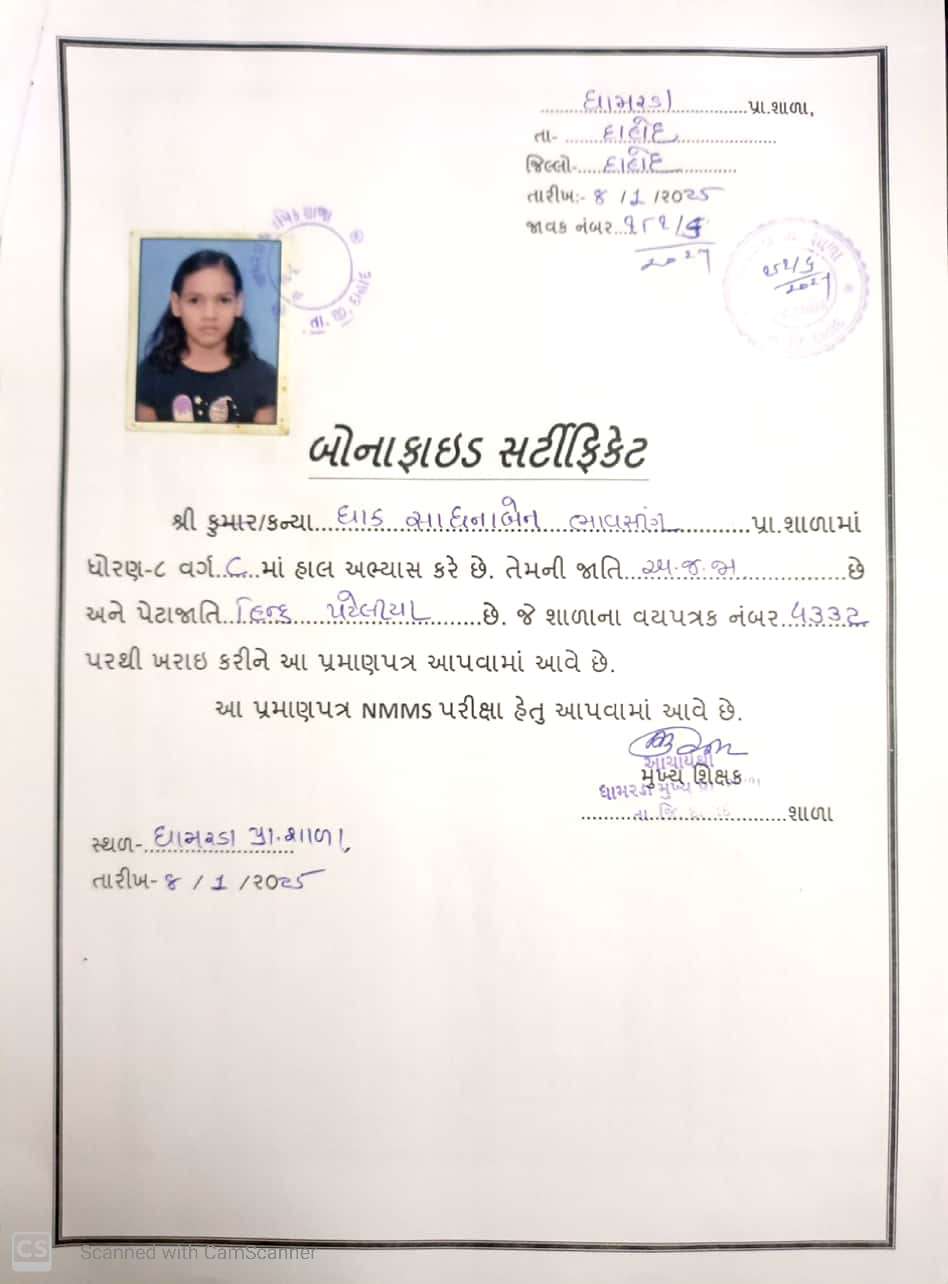 ધામરડા પ્રા.શાળા,
તા- દાહોદ
જિલ્લો- દાહોદ
તારીખ:- ૪ /1 /૨૦૨5
જાવક નંબર..
તા. જી. દાહોદ
બોનાફાઇડ સર્ટીફિકેટ
શ્રી કુમાર/કન્યા ધાક સાધનાબેન ભાવસીંગ પ્રા.શાળામાં
ધોરણ-૮ વર્ગ ૮ માં હાલ અભ્યાસ કરે છે. તેમની જાતિ અ.જ.જા છે
અને પેટાજાતિ હિન્દુ પટેલીયા છે. જે શાળાના વયપત્રક નંબર ૫૩૩૮
પરથી ખરાઇ કરીને આ પ્રમાણપત્ર આપવામાં આવે છે.
આ પ્રમાણપત્ર NMMS પરીક્ષા હેતુ આપવામાં આવે છે.
આચાર્યશ્રી
મુખ્ય શિક્ષક
ધામરડા મુખ્ય
શાળા
સ્થળ- ધામરડા પ્રા.શાળા,
તારીખ- ૪ / 1 /૨૦૨5
CS Scanned with CamScanner